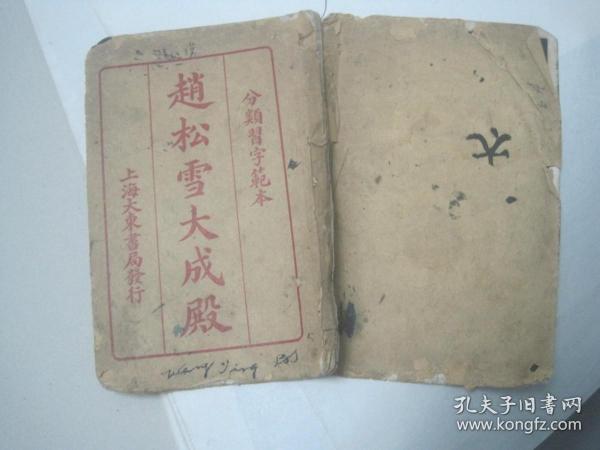 分類習字範本
趙松雪大成殿
上海大東書局發行
Wang Ying
太
孔夫子旧书网
www.kongfz.com